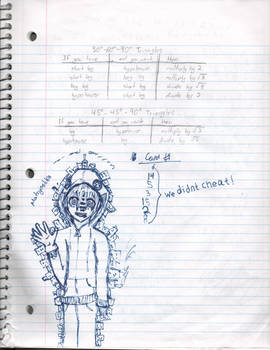 30°-60°-90° Triangles
If you have and you want then
short leg hypotenuse multiply by 2
short leg long leg multiply by √3
long leg short leg divide by √3
hypotenuse short leg divide by 2
45°-45°-90° Triangles
If you have and you want then
leg hypotenuse multiply by √2
hypotenuse leg divide by √2
Count #
14
5
3
15
2
we didnt cheat!